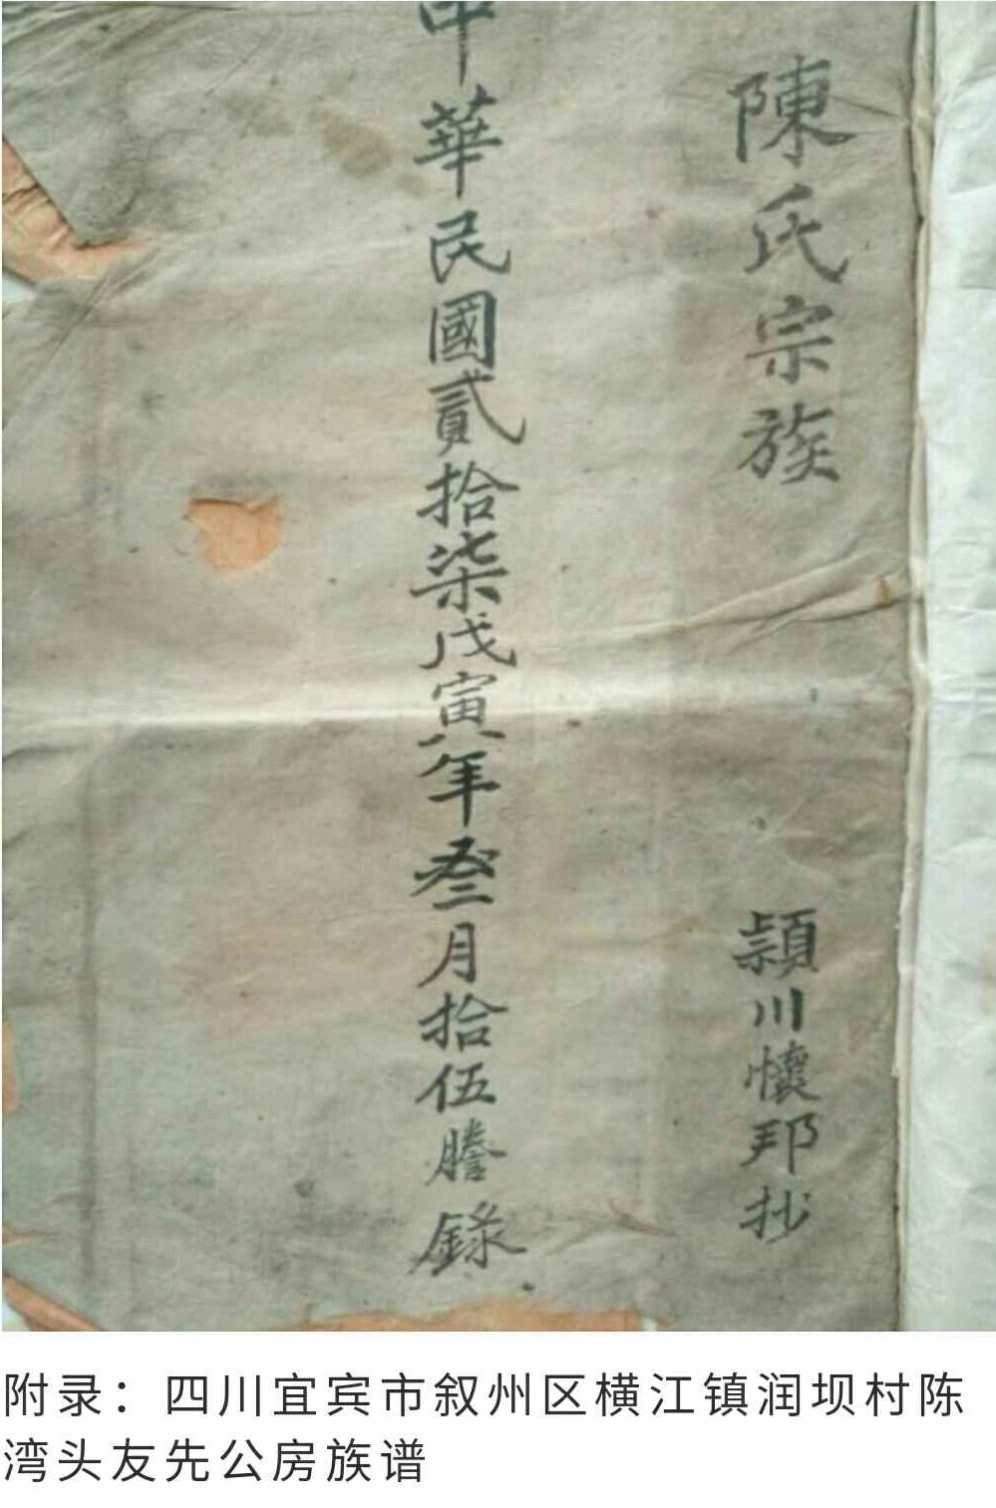 陳氏宗族
頴川懷邦抄
中華民國貳拾柒戊寅年叁月拾伍謄錄
附录：四川宜宾市叙州区横江镇润坝村陈
湾头友先公房族谱